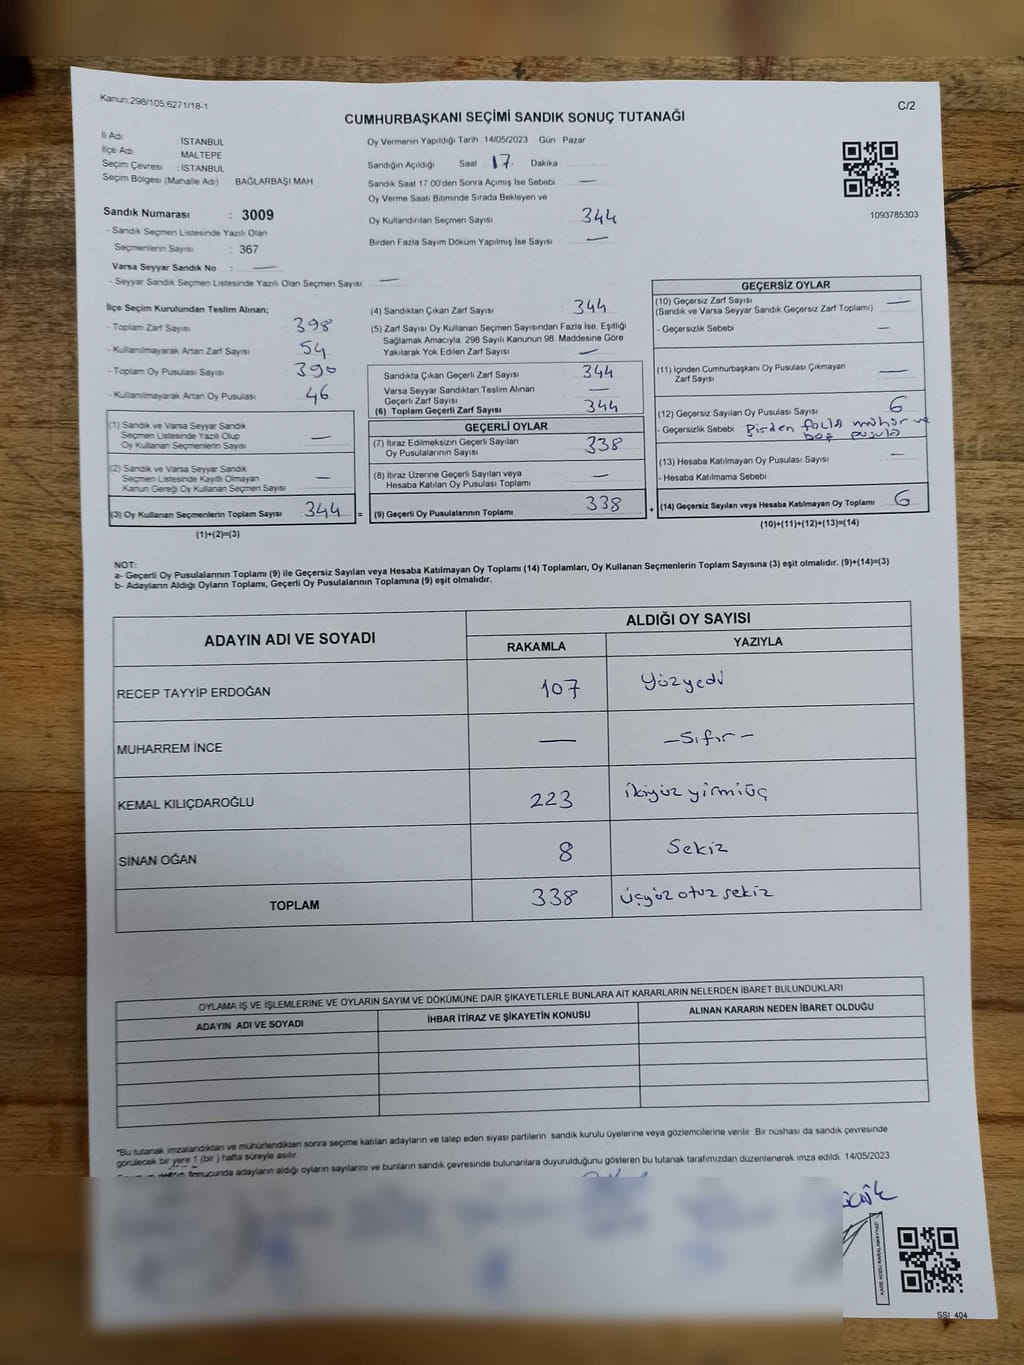 Kanun;298/105;6271/18-1
C/2
CUMHURBAŞKANI SEÇİMİ SANDIK SONUÇ TUTANAĞI
İl Adı : İSTANBUL
İlçe Adı : MALTEPE
Seçim Çevresi : İSTANBUL
Seçim Bölgesi (Mahalle Adı) : BAĞLARBAŞI MAH.
Sandık Numarası : 3009
- Sandık Seçmen Listesinde Yazılı Olan
Seçmenlerin Sayısı : 367
Varsa Seyyar Sandık No : —
- Seyyar Sandık Seçmen Listesinde Yazılı Olan Seçmen Sayısı: —
Oy Vermenin Yapıldığı Tarih 14/05/2023 Gün : Pazar
Sandığın Açıldığı Saat 17 Dakika
Sandık Saat 17.00'den Sonra Açımış İse Sebebi : —
Oy Verme Saati Bitiminde Sırada Bekleyen ve
Oy Kullandırılan Seçmen Sayısı : 344
Birden Fazla Sayım Döküm Yapılmış İse Sayısı : —
1093785303
İlçe Seçim Kurulundan Teslim Alınan;
- Toplam Zarf Sayısı : 398
- Kullanılmayarak Artan Zarf Sayısı : 54
- Toplam Oy Pusulası Sayısı : 390
- Kullanılmayarak Artan Oy Pusulası : 46
(1) Sandık ve Varsa Seyyar Sandık
Seçmen Listesinde Yazılı Olup
Oy Kullanan Seçmenlerin Sayısı —
(2) Sandık ve Varsa Seyyar Sandık
Seçmen Listesinde Kayıtlı Olmayan
Kanun Gereği Oy Kullanan Seçmen Sayısı —
(3) Oy Kullanan Seçmenlerin Toplam Sayısı 344 =
(1)+(2)=(3)
(4) Sandıktan Çıkan Zarf Sayısı : 344
(5) Zarf Sayısı Oy Kullanan Seçmen Sayısından Fazla İse, Eşitliği
Sağlamak Amacıyla, 298 Sayılı Kanunun 98. Maddesine Göre
Yakılarak Yok Edilen Zarf Sayısı : —
Sandıkta Çıkan Geçerli Zarf Sayısı : 344
Varsa Seyyar Sandıktan Teslim Alınan
Geçerli Zarf Sayısı : —
(6) Toplam Geçerli Zarf Sayısı : 344
GEÇERLİ OYLAR
(7) İtiraz Edilmeksizin Geçerli Sayılan
Oy Pusulalarının Sayısı : 338
(8) İtiraz Üzerine Geçerli Sayılan veya
Hesaba Katılan Oy Pusulası Toplamı : —
(9) Geçerli Oy Pusulalarının Toplamı : 338 +
GEÇERSİZ OYLAR
(10) Geçersiz Zarf Sayısı : —
(Sandık ve Varsa Seyyar Sandık Geçersiz Zarf Toplamı)
- Geçersizlik Sebebi : —
(11) İçinden Cumhurbaşkanı Oy Pusulası Çıkmayan
Zarf Sayısı : —
(12) Geçersiz Sayılan Oy Pusulası Sayısı : 6
- Geçersizlik Sebebi : Birden fazla mühür ve
boş pusula
(13) Hesaba Katılmayan Oy Pusulası Sayısı : —
- Hesaba Katılmama Sebebi :
(14) Geçersiz Sayılan veya Hesaba Katılmayan Oy Toplamı : 6
(10)+(11)+(12)+(13)=(14)
NOT:
a- Geçerli Oy Pusulalarının Toplamı (9) ile Geçersiz Sayılan veya Hesaba Katılmayan Oy Toplamı (14) Toplamları, Oy Kullanan Seçmenlerin Toplam Sayısına (3) eşit olmalıdır. (9)+(14)=(3)
b- Adayların Aldığı Oyların Toplamı, Geçerli Oy Pusulalarının Toplamına (9) eşit olmalıdır.
ADAYIN ADI VE SOYADI
ALDIĞI OY SAYISI
RAKAMLA YAZIYLA
RECEP TAYYİP ERDOĞAN 107 Yüzyedi
MUHARREM İNCE — -Sıfır-
KEMAL KILIÇDAROĞLU 223 ikiyüz yirmiüç
SİNAN OĞAN 8 Sekiz
TOPLAM 338 üçyüz otuz sekiz
OYLAMA İŞ VE İŞLEMLERİNE VE OYLARIN SAYIM VE DÖKÜMÜNE DAİR ŞİKAYETLERLE BUNLARA AİT KARARLARIN NELERDEN İBARET BULUNDUKLARI
ADAYIN ADI VE SOYADI İHBAR İTİRAZ VE ŞİKAYETİN KONUSU ALINAN KARARIN NEDEN İBARET OLDUĞU
*Bu tutanak imzalandıktan ve mühürlendikten sonra seçime katılan adayların ve talep eden siyasi partilerin sandık kurulu üyelerine veya gözlemcilerine verilir. Bir nüshası da sandık çevresinde
görülecek bir yere 1 (bir ) hafta süreyle asılır.
sonucunda adayların aldığı oyların sayılarını ve bunların sandık çevresinde bulunanlara duyurulduğunu gösteren bu tutanak tarafımızdan düzenlenerek imza edildi. 14/05/2023
KARE KODU KARALAMAYINIZ!
SSI_404